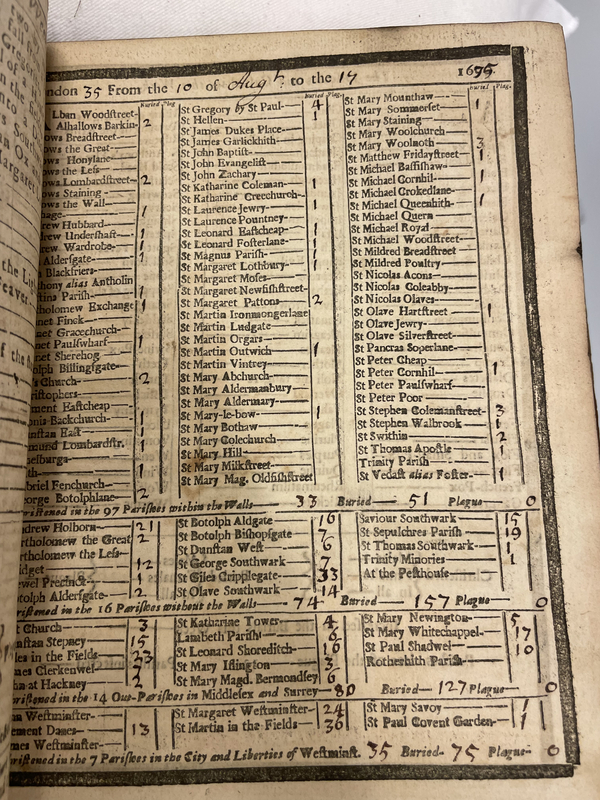 ondon 35 From the 10 of Augst to the 17 1675
Buried Plag.
Lban Woodstreet-
A. Alhallows Barkin- 2
ows Breadstreet-
ows the Great-
ows Honylane-
ows the Less-
ows Lombardstreet- 2
ows Staining-
ows the Wall-
nage-
rew Hubbard-
drew Undershaft- 1
rew Wardrobe- 1
Aldersgate- 1
Blackfriers-
hony alias Antholin
stins Parish- 1
tholomew Exchange 1
net Finck-
net Gracechurch-
net Paulswharf- 1
net Sherehog-
olph Billingsgate-
's Church- 2
istophers-
ment Eastcheap-
onis Backchurch- 1
nstan East- 1
mund Lombardstr. 1
helburga-
ith- 1
briel Fenchurch-
eorge Botolphlane- 2
Buried Plag.
St Gregory by St Paul- 4
St Hellen- 1
St James Dukes Place-
St James Garlickhith-
St John Baptist-
St John Evangelist-
St John Zachary-
St Katharine Coleman- 1
St Katharine Creechurch-
St Laurence Jewry- 1
St Laurence Pountney-
St Leonard Eastcheap- 1
St Leonard Fosterlane-
St Magnus Parish- 1
St Margaret Lothbury- 1
St Margaret Moses-
St Margaret Newfishstreet-
St Margaret Pattons- 2
St Martin Ironmongerlane
St Martin Ludgate-
St Martin Orgars-
St Martin Outwich- 1
St Martin Vintrey-
St Mary Abchurch-
St Mary Aldermanbury-
St Mary Aldermary-
St Mary-le-bow- 1
St Mary Bothaw-
St Mary Colechurch-
St Mary Hill-
St Mary Milkstreet-
St Mary Mag. Oldfishstreet
Buried Plag.
St Mary Mounthaw- 1
St Mary Sommerset-
St Mary Staining-
St Mary Woolchurch-
St Mary Woolnoth- 3
St Matthew Fridaystreet- 1
St Michael Bassishaw-
St Michael Cornhil- 1
St Michael Crokedlane-
St Michael Queenhith- 1
St Michael Quern-
St Michael Royal-
St Michael Woodstreet-
St Mildred Breadstreet
St Mildred Poultry-
St Nicolas Acons-
St Nicolas Coleabby-
St Nicolas Olaves-
St Olave Hartstreet 1
St Olave Jewry-
St Olave Silverstreet-
St Pancras Soperlane-
St Peter Cheap-
St Peter Cornhil- 1
St Peter Paulswharf-
St Peter Poor-
St Stephen Colemanstreet- 3
St Stephen Walbrook- 1
St Swithin- 2
St Thomas Apostle 1
Trinity Parish-
St Vedast alias Foster- 1
ristened in the 97 Parishes within the Walls- 33 Buried- 51 Plague- 0
ndrew Holborn- 21
artholomew the Great 2
artholomew the Less-
ridget- 12
ewel Precinct- 1
otolph Aldersgate- 2
St Botolph Aldgate- 16
St Botolph Bishopsgate 7
St Dunstan West- 6
St George Southwark- 7
St Giles Cripplegate- 33
St Olave Southwark- 14
Saviour Southwark- 15
St Sepulchres Parish- 19
St Thomas Southwark- 1
Trinity Minories- 1
At the Pesthouse-
ristened in the 16 Parishes without the Walls- 74 Buried- 157 Plague- 0
st Church- 3
nstan Stepney- 15
iles in the Fields- 23
mes Clerkenwel-
hn at Hackney- 2
St Katharine Tower- 4
Lambeth Parish- 6
St Leonard Shoreditch- 16
St Mary Islington- 3
St Mary Magd. Bermondsey 6
St Mary Newington- 5
St Mary Whitechappel- 17
St Paul Shadwel- 10
Rotherhith Parish-
ristened in the 14 Out-Parishes in Middlesex and Surrey- 80 Buried- 127 Plague- 0
nn Westminster-
ement Danes- 13
mes Westminster-
St Margaret Westminster- 24
St Martin in the Fields- 36
St Mary Savoy- 1
St Paul Covent Garden- 1
ristened in the 7 Parishes in the City and Liberties of Westminst. 35 Buried- 75 Plague- 0